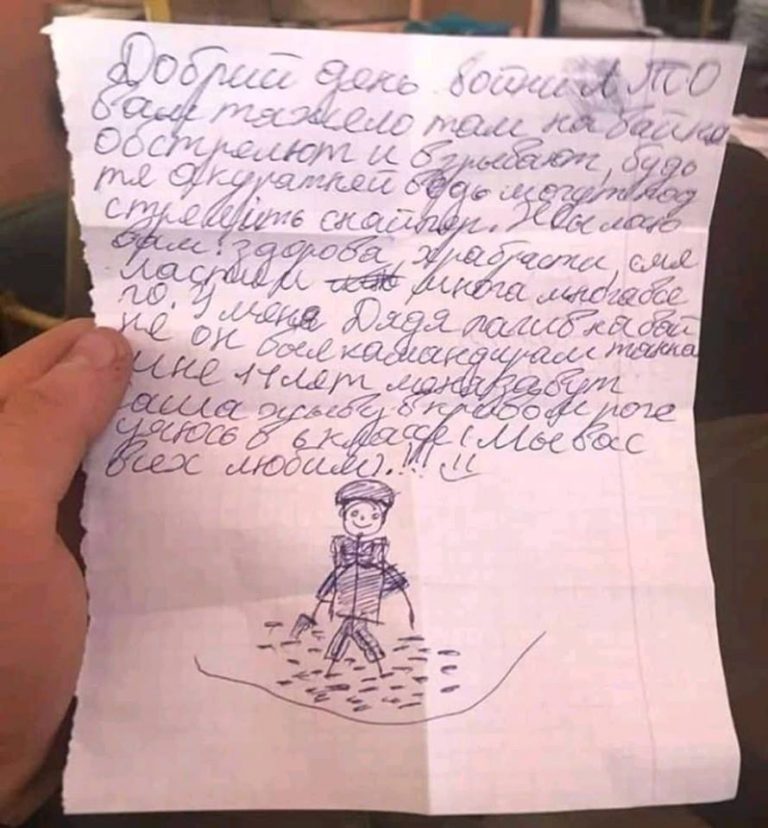 Добрий день войни АТО
вам тяжело там на байне
обстрелют и взрывают, будь
те акуратней ведь могут под
стрелить снайпер. Жылаю
вам: здорова, храбрасти, сме
ластии многа многа все
го. У мене Дядя пагиб на вай
не он был камандирам танка
мне 11 лет меня завут
аша жыву в кривом роге
учюсь в 6 классе! Мы вас
всех любим).!!!